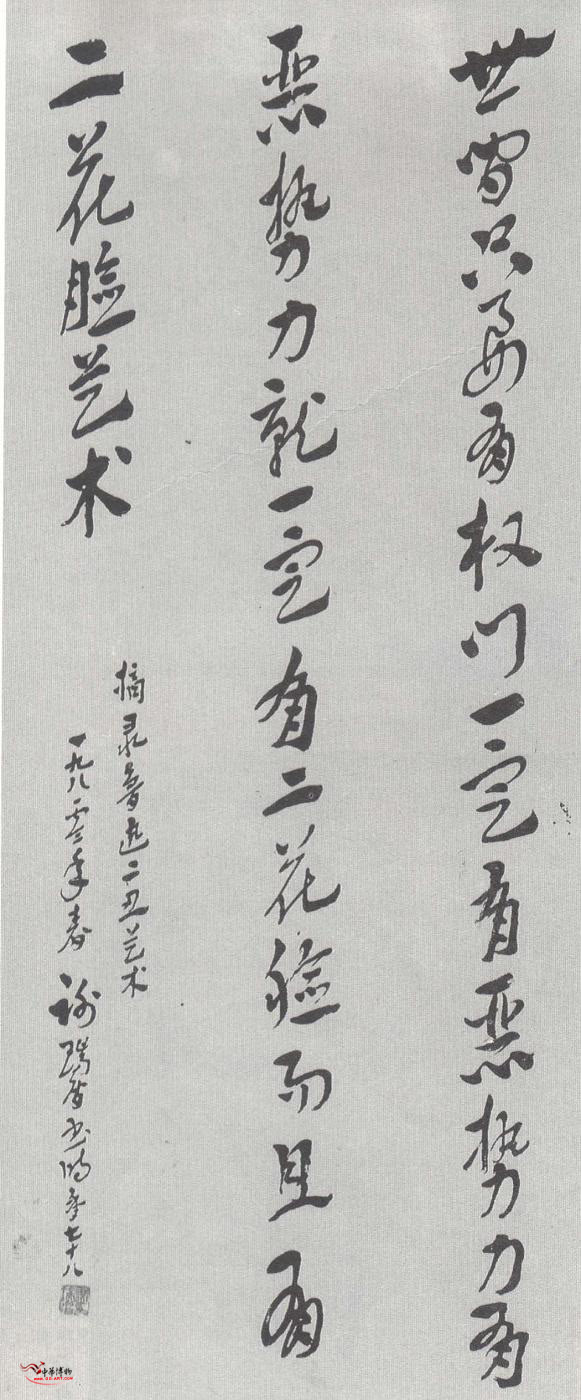 世間只要有权门一定有恶势力有
恶势力就一定有二花脸而且有
二花脸艺术
摘录鲁迅二丑艺术
一九八零年春 谢瑞阶书 时年七十八
中華博物